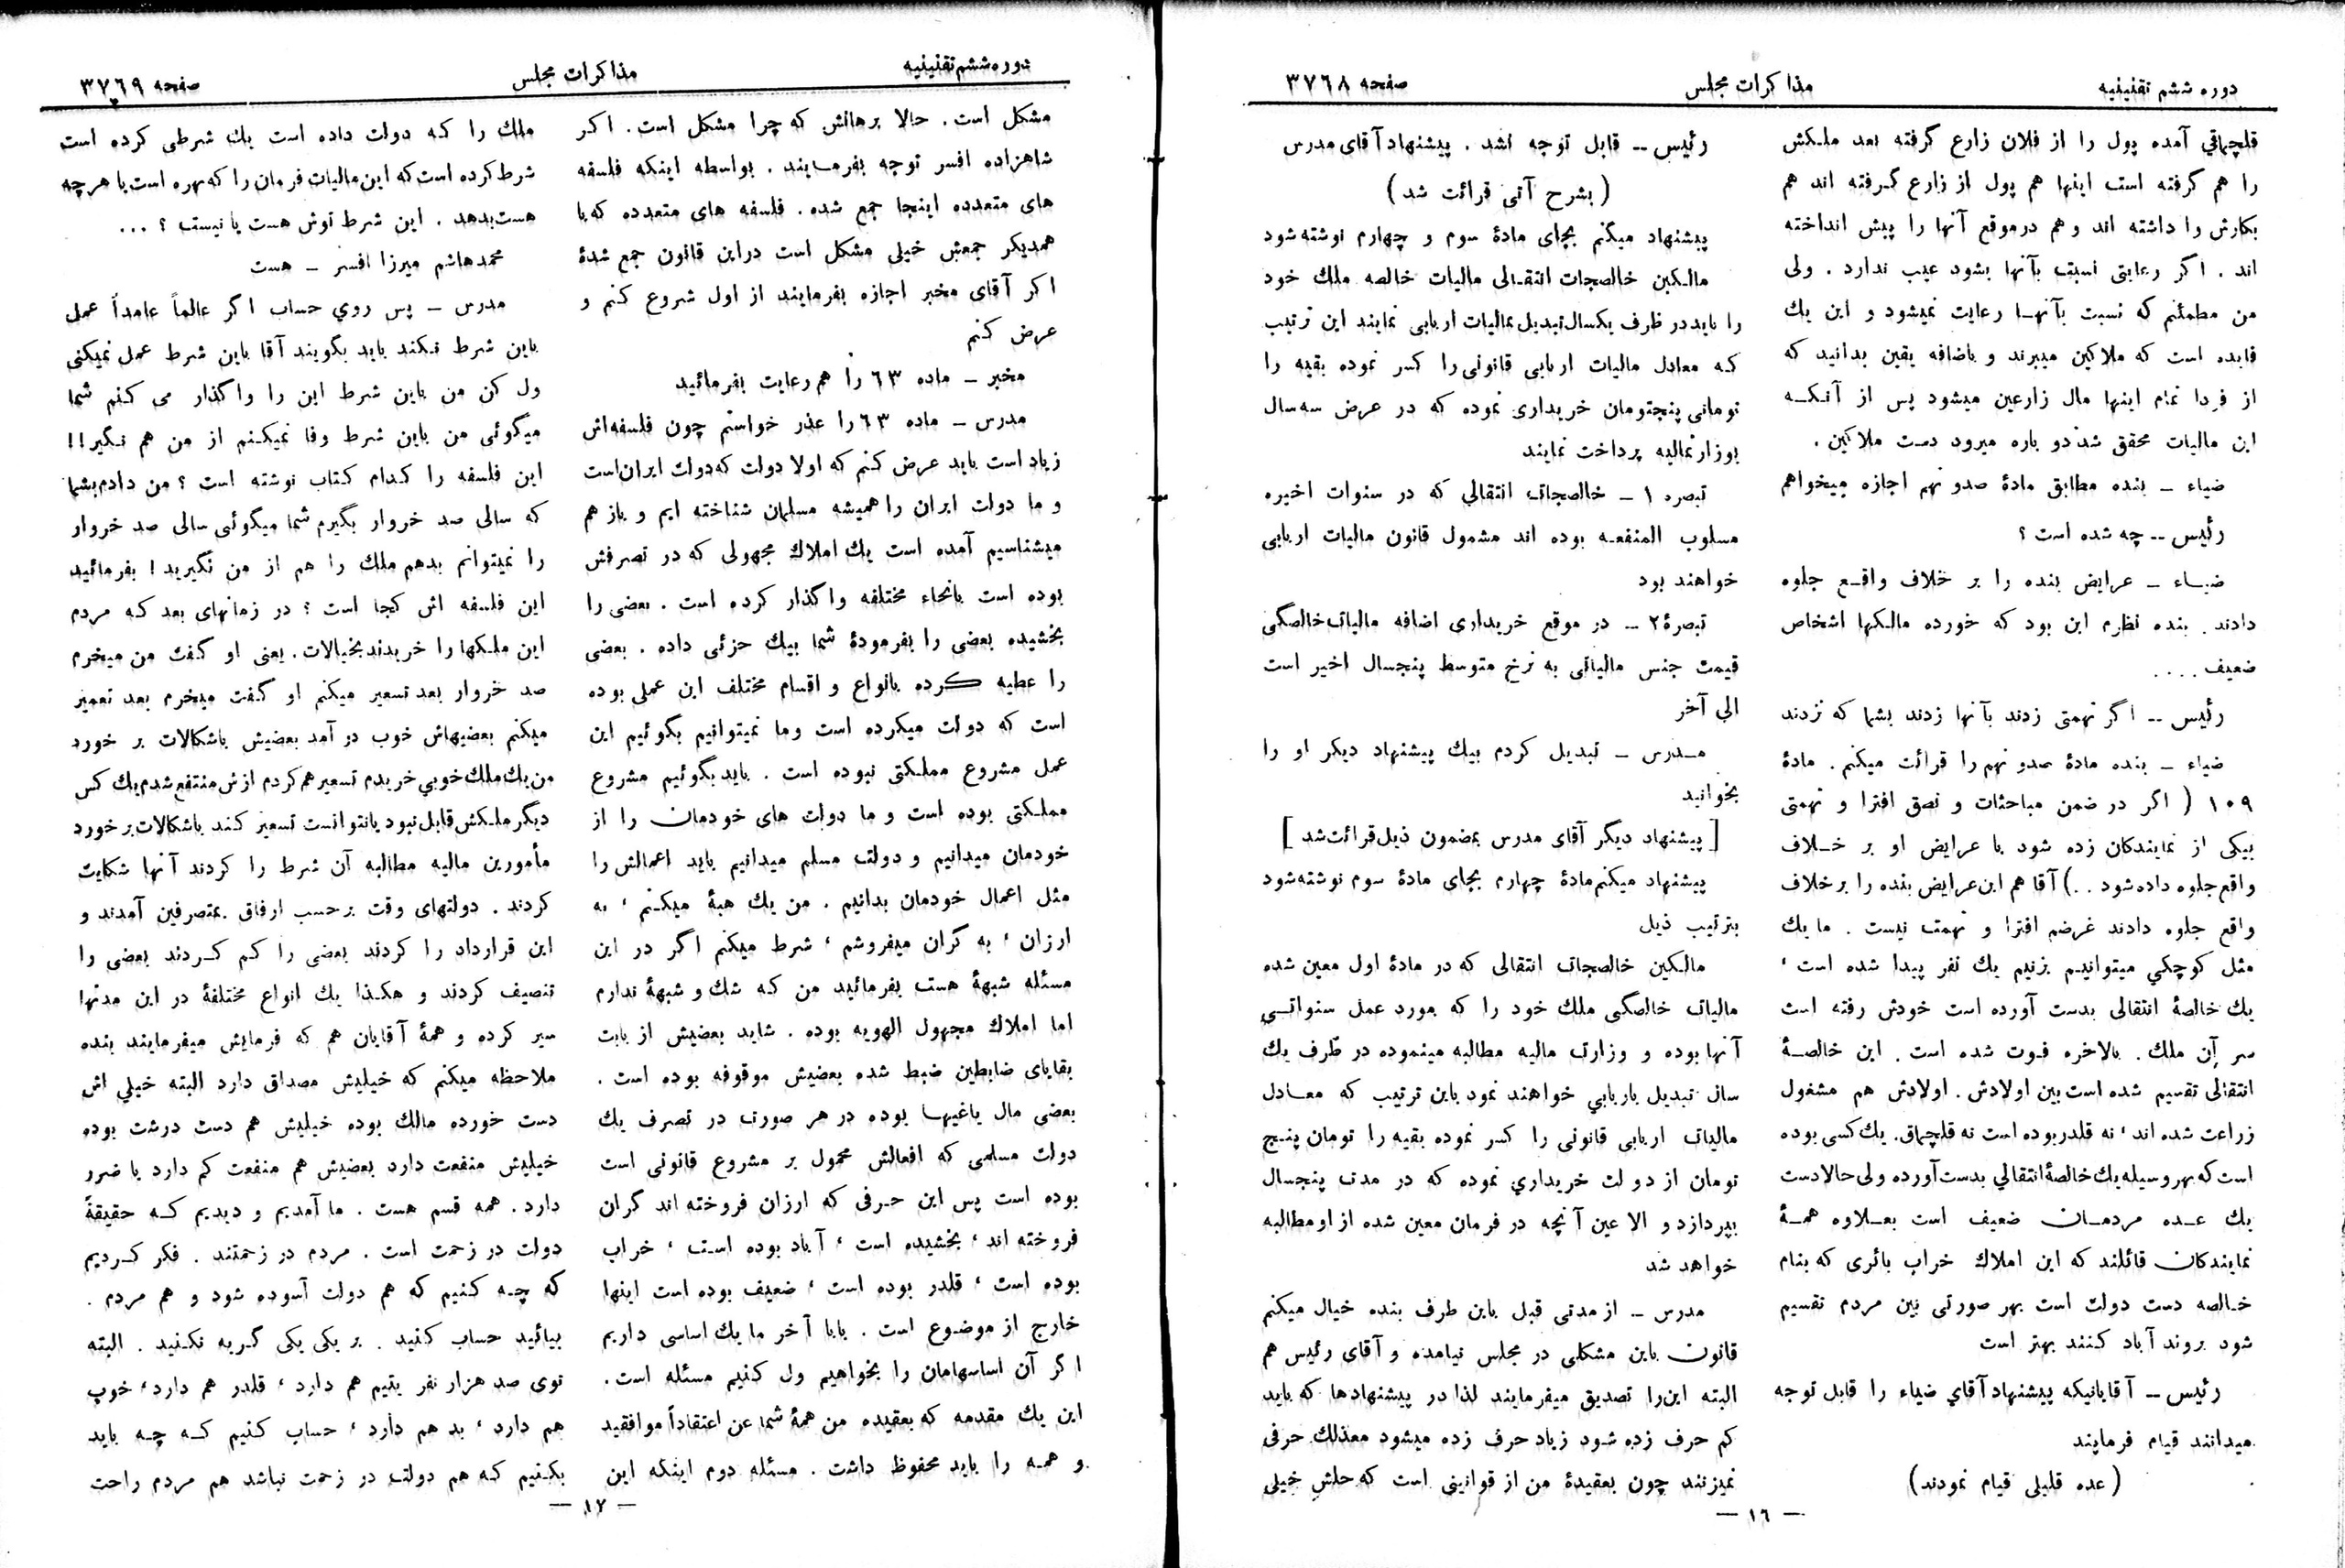 دوره ششم تقنینیه
مذاکرات مجلس
صفحه ۳۷٦۸
قلچماقي آمده پول را از فلان زارع گرفته بعد ملکش
را هم گرفته است اینها هم پول از زارع گرفته اند هم
بکارش را داشته اند و هم درموقع آنها را پیش انداخته
اند . اگر رعایتی نسبت بآنها بشود عیب ندارد . ولی
من مطمئنم که نسبت بآنهـا رعایت نمیشود و این یك
فایده است که ملاکین میبرند و باضافه یقین بدانید که
از فردا تمام اینها مال زارعین میشود پس از آنکـه
این مالیات محقق شد دو باره میرود دست ملاکین .
ضیاء ــ بنده مطابق مادهٔ صدو نهم اجازه میخواهم
رئیس -- چه شده است ؟
ضیـاء ــ عرایض بنده را بر خلاف واقـع جلوه
دادند . بنده نظرم این بود که خورده مالکها اشخاص
ضعیف ....
رئیس -- اگر تهمتی زدند بآنها زدند بشما که نزدند
ضیاء ــ بنده مادهٔ صدو نهم را قرائت میکنم . مادهٔ
۱۰۹ ( اگر در ضمن مباحثات و نصق افترا و تهمتی
بیکی از نمایندکان زده شود یا عرایض او بر خـلاف
واقع جلوه داده شود ..) آقا هم این عرایض بنده را برخلاف
واقع جلوه دادند غرضم افترا و تهمت نیست . ما یك
مثل کوچکي میتوانیـم بزنیم یك نفر پیدا شده است ،
یك خالصهٔ انتقالی بدست آورده است خودش رفته است
سر آن ملك . بالاخره فـوت شده است . این خالصـهٔ
انتقالی تقسیم شده است بین اولادش . اولادش هم مشغول
زراعت شده اند ، نه قلدر بوده است نه قلچماق. یك کسی بوده
است که بهر وسیله یك خالصهٔ انتقالي بدست آورده ولی حالا دست
یك عـده مردمـان ضعیف است بعـلاوه همـهٔ
نمایندکان قائلند که این املاك خراب بائری که بنام
خـالصه دست دولت است بهر صورتی بین مردم تقسیم
شود بروند آباد کـنند بهتر است
رئیس ــ آقایانیکه پیشنهاد آقاي ضیاء را قابل توجه
میدانند قیام فرمایند
(عده قلیلی قیام نمودند)
رئیس -- قابل توجه نشد . پیشنهاد آقای مدرس
(بشرح آتی قرائت شد)
پیشنهاد میکنم بجای مادهٔ سوم و چهارم نوشته شود
مالـکین خالصجات انتقـالی مالیات خالصه ملك خود
را باید در ظرف یکسال تبدیل بمالیات اربابی نمایند این ترتیب
کـه معادل مالیات اربابی قانونی را کسر نموده بقیه را
تومانی پنجتومان خریداری نموده که در عرض سه سال
بوزارتمالیه پرداخت نمایند
تبصره ۱ ــ خالصجات انتقالي که در سنوات اخیره
مسلوب المنفعـه بوده اند مشمول قانون مالیات اربابی
خواهند بود
تبصرهٔ۲ ــ در موقع خریداری اضافه مالیات خالصگی
قیمت جنس مالیاتی به نرخ متوسط پنجسال اخیر است
الي آخر
مـدرس ــ تبدیل کردم بیك پیشنهاد دیکر او را
بخوانید
[ پیشنهاد دیگر آقای مدرس بمضمون ذیل قرائت شد ]
پیشنهاد میکنم مادهٔ چهارم بجای مادهٔ سوم نوشته شود
بترتیب ذیل
مالـکین خالصجات انتقالی که در مادهٔ اول معین شده
مالیات خالصگی ملك خود را که مورد عمل سنواتـی
آنها بوده و وزارت مالیه مطالبه مینموده در ظرف یك
سال تبدیل باربابي خواهند نمود باین ترتیب که معـادل
مالیات اربابی قانونی را کسر نموده بقیه را تومان پنـج
تومان از دولت خریداري نموده که در مدت پنجسال
بپردازد و الا عین آنچه در فرمان معین شده از او مطالبه
خواهد شد
مدرس ــ از مدتی قبل باین طرف بنده خیال میکنم
قانون باین مشکلی در مجلس نیامده و آقای رئیس هم
البته این را تصدیق میفرمایند لذا در پیشنهادها که باید
کم حرف زده شود زیاد حرف زده میشود معذلك حرفی
نمیزنند چون بعقیدهٔ من از قوانینی است که حلش خیلی
— ۱٦ —
دوره ششم تقنینیه
مذاکرات مجلس
صفحه ۳۷٦۹
مشکل است . حالا برهانش که چرا مشکل است . اکر
شاهزاده افسر توجه بفرمـایند . بواسطه اینکه فلسفه
های متعدده اینجا جمع شده . فلسفه های متعدده که با
همدیکر جمعش خیلی مشکل است دراین قانون جمع شدهٔ
اکر آقای مخبر اجازه بفرمایند از اول شروع کنم و
عرض کنم
مخبر ــ ماده ٦۳ را هم رعایت بفرمائید
مدرس ــ ماده ٦۳ را عذر خواستم چون فلسفه اش
زیاد است باید عرض کنم که اولا دولت که دولت ایران است
و ما دولت ایران را همیشه مسلمان شناخته ایم و باز هم
میشناسیم آمده است یك املاك مجهولی که در تصرفش
بوده است بانحاء مختلفه واکذار کرده است . بعضی را
بخشیده بعضی را بفرمودهٔ شما بیك حزئی داده . بعضی
را عطیه کرده بانواع و اقسام مختلف این عملی بوده
است که دولت میکرده است وما نمیتوانیم بگوئیم این
عمل مشروع مملـکتی نبوده است . باید بگوئیم مشروع
مملـکتی بوده است و ما دولت های خودمان را از
خودمان میدانیم و دولت مسلم میدانیم باید اعمالش را
مثل اعمال خودمان بدانیم . من یك هبهٔ میکـنم ، به
ارزان ، به گران میفروشم ، شرط میکنم اگر در این
مسئله شبههٔ هست بفرمائید من کـه شك و شبههٔ ندارم
اما املاك مجهول الهویه بوده . شاید بعضیش از بابت
بقایای ضابطین ضبط شده بعضیش موقوفه بوده است .
بعضی مال یاغیهـا بوده در هر صورت در تصرف یك
دولت مسلمی که افعالش محمول بر مشروع قانونی است
بوده است پس این حـرفی که ارزان فروخته اند گران
فروخته اند ، بخشیده است ، آباد بوده است ، خراب
بوده است ، قلدر بوده است ، ضعیف بوده است اینها
خارج از موضـوع است . بابا آخر ما یك اساسی داریم
اگر آن اساسهامان را بخواهیم ول کنیم مسئله است .
این یك مقدمه که بعقیده من همهٔ شما عن اعتقاداً موافقید
و همـه را باید محفوظ داشت . مسئله دوم اینکه این
ملك را کـه دولت داده است یك شرطی کرده است
شرط کرده است که این مالیات فرمان را که بهره است یا هر چه
هست بدهد . این شرط توش هست یا نیست ؟ ...
محمد هاشم میرزا افسر ــ هست
مدرس ــ پس روي حساب اگر عالماً عامداً عمل
باین شرط نـکند باید بگویند آقا باین شرط عمل نمیکنی
ول کن من باین شرط این را واگذار می کـنم شما
میگوئی من باین شرط وفا نمیکـنم از من هم نـگیر!!
این فلسفه را کـدام کـتاب نوشته است ؟ من دادم بشما
که سالی صد خروار بگیرم شما میگوئی سالی صد خروار
را نمیتوانم بدهم ملك را هم از من نگیرید ! بفرمائید
این فلسفه اش کجا است ؟ در زمانهای بعد کـه مردم
این ملـکها را خریدند بخیالات . یعنی او کـفت من میخرم
صد خروار بعد تسعیر میکنم او کـفت میخرم بعد تعمیر
میکنم بعضیهاش خوب در آمد بعضیش باشکالات بر خورد
من یك ملك خوبي خریدم تسعیر هم کردم ازش منتفع شدم یك کس
دیگر ملـکش قابل نبود یا نتوانست تسعیر کند باشکالات بر خورد
مأمورین مالیه مطالبه آن شرط را کردند آنها شکایت
کردند . دولتهای وقت بر حسب ارفاق بمتصرفین آمدند و
این قرارداد را کردند بعضی را کـم کـردند بعضی را
تنصیف کردند و هکـذا یك انواع مختلفهٔ در این مدتها
سیر کرده و همهٔ آقایان هم که فرمایش میفرمایند بنده
ملاحظه میکنم که خیلیش مصداق دارد البته خیلي اش
دست خورده مالك بوده خیلیش هم دست درشت بوده
خیلیش منفعت دارد بعضیش هم منفعت کم دارد یا ضرر
دارد . همه قسم هست . ما آمدیم و دیدیم کـه حقیقةً
دولت در زحمت است . مردم در زحمتند . فکر کـردیم
که چـه کـنیم که هم دولت آسوده شود و هم مردم .
بیائید حساب کـنید . بر یکی یکی گـریه نکـنید . البته
توی صد هزار نفر یتیم هم دارد ، قلدر هم دارد ، خوب
هم دارد ، بد هم دارد ، حساب کـنیم کـه چـه باید
بکـنیم کـه هم دولت در زحمت نباشد هم مردم راحت
— ۱۷ —